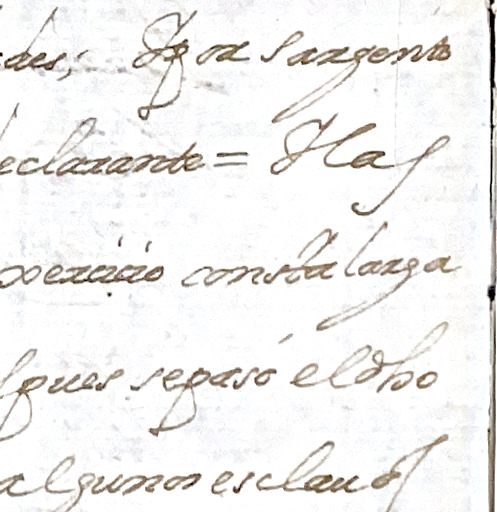 des; Y por Sargento
eclarante = Y las
oexercicio consta larga
spues se pasó el dho
algunos esclauos